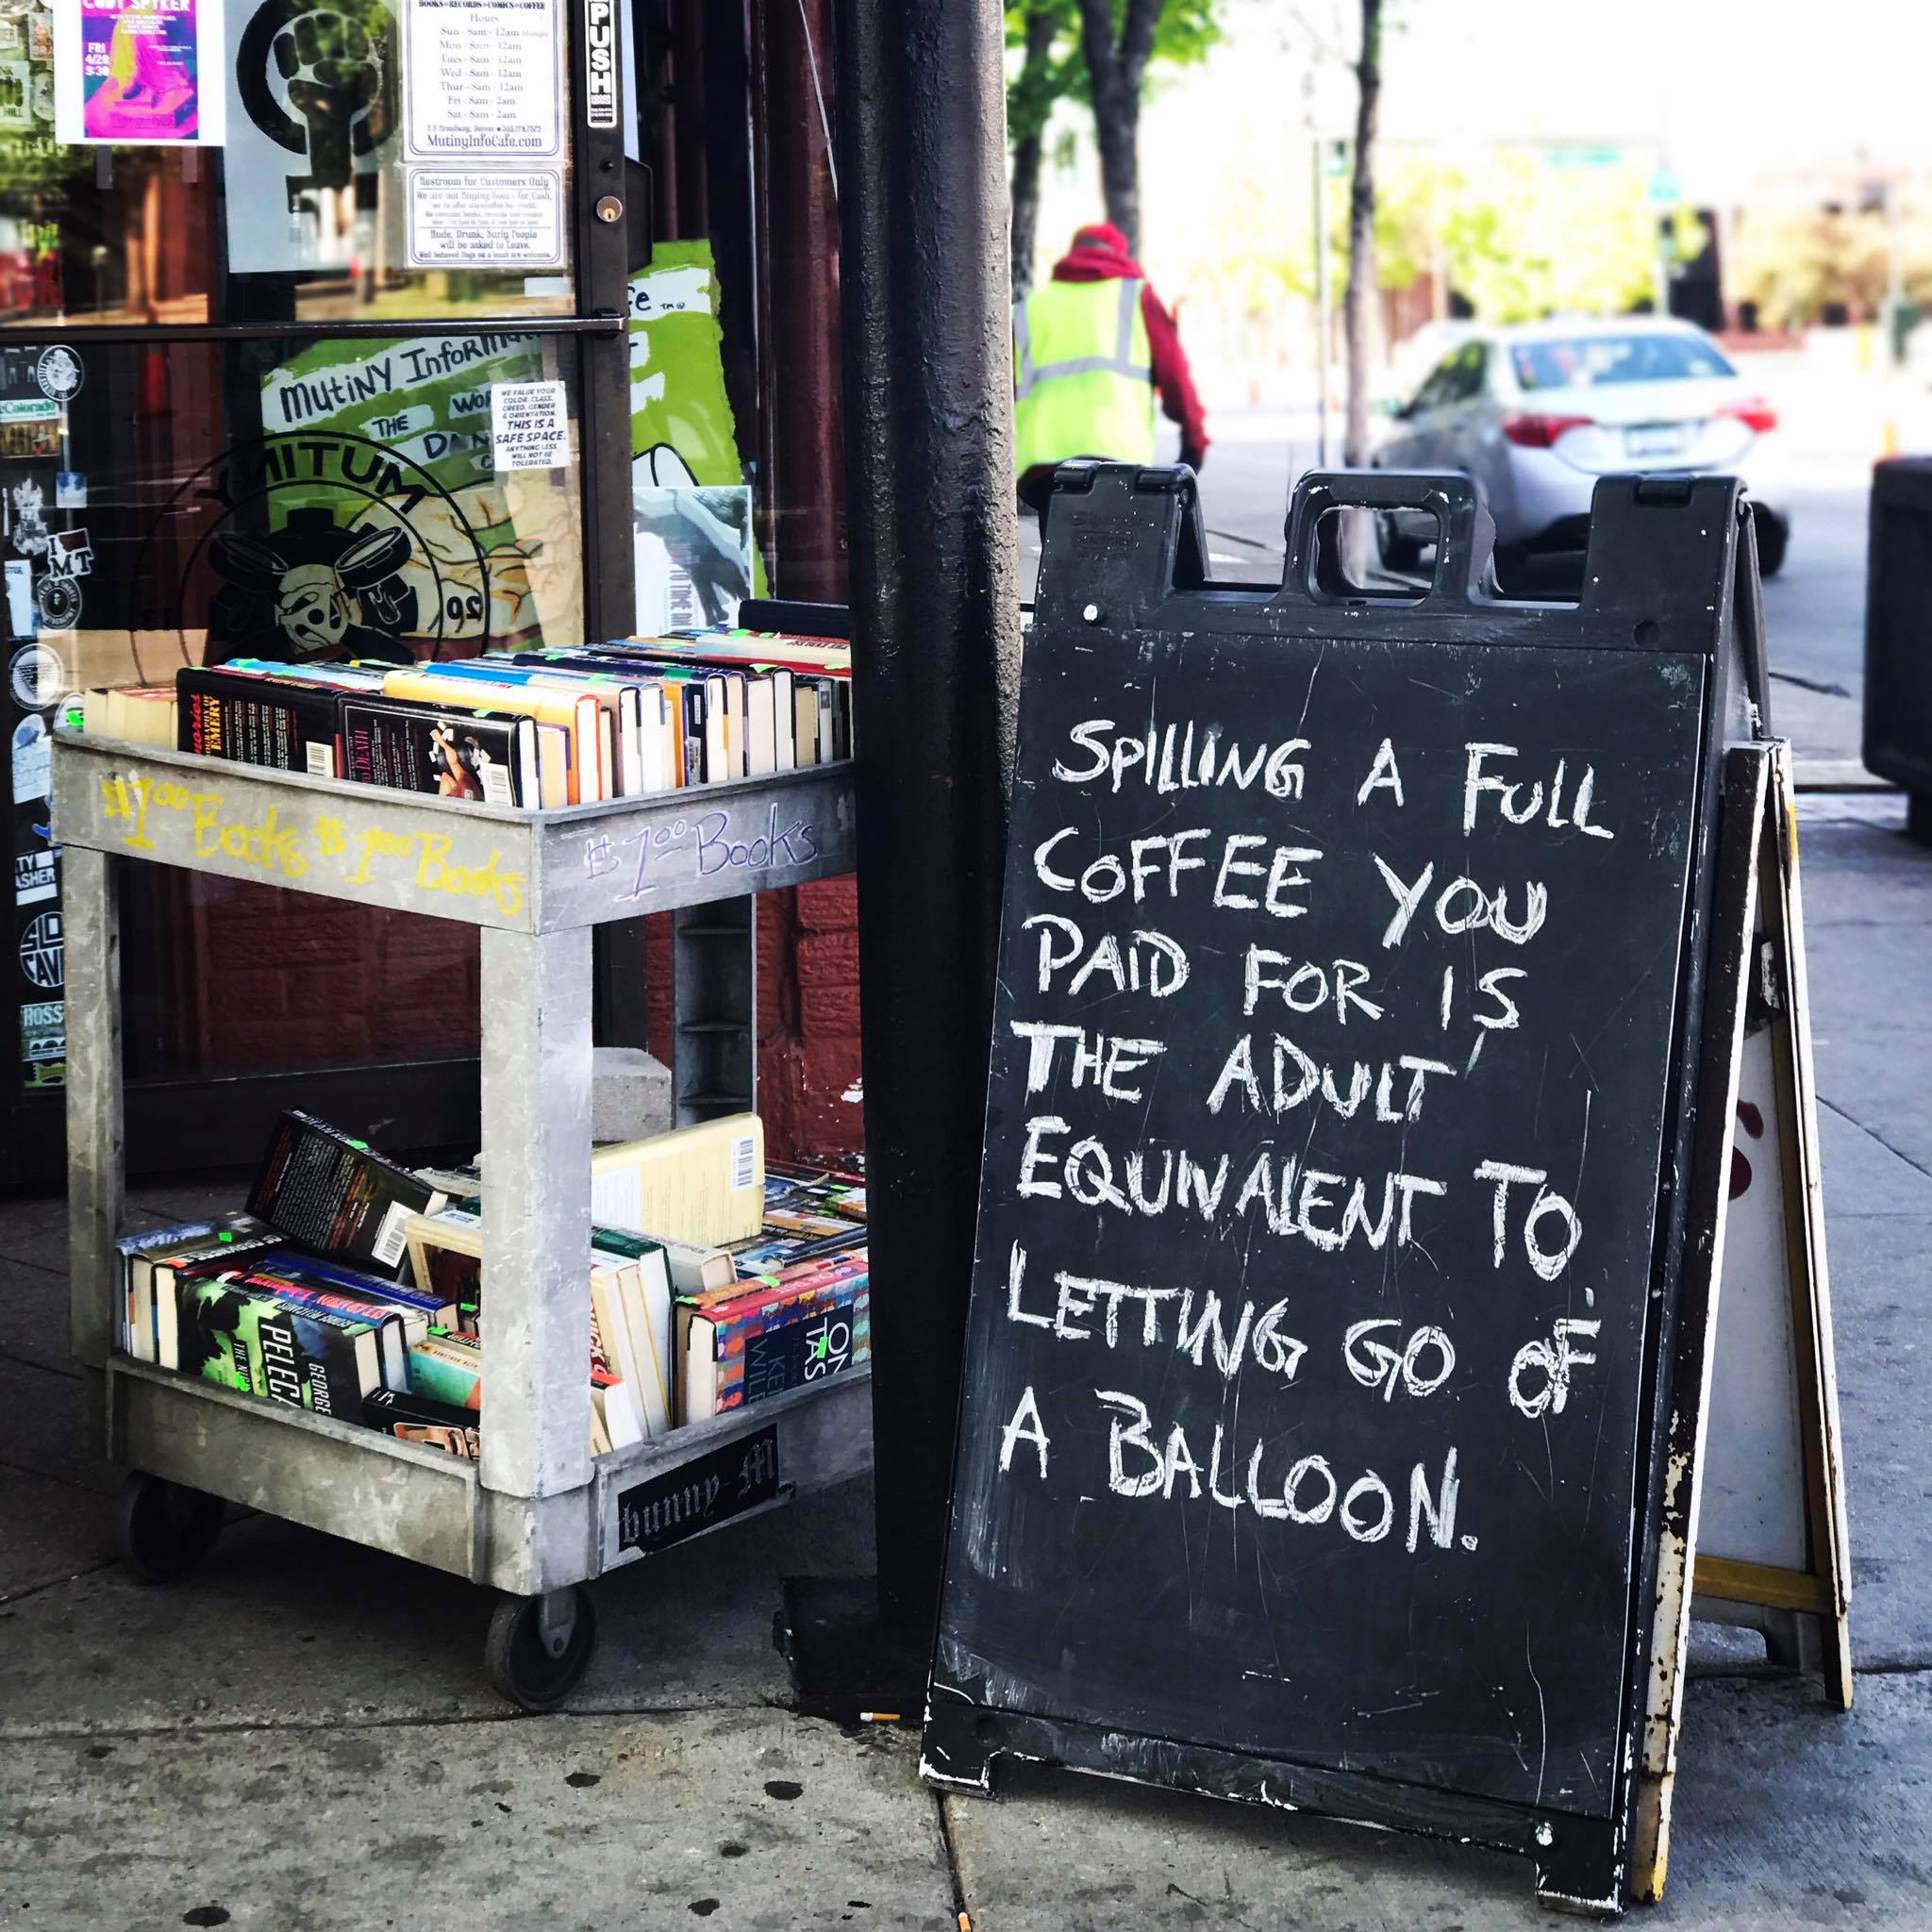 CODY SPYKER
FRI
4/28
9:30
BOOKS•RECORDS•COMICS•COFFEE
Hours
Sun - 8am - 12am Midnight
Mon - 8am - 12am
Tues - 8am - 12am
Wed - 8am - 12am
Thur - 8am - 12am
Fri - 8am - 2am
Sat - 8am - 2am
MutinyInfoCafe.com
Restroom for Customers Only
We are not Buying Books for Cash,
Rude, Drunk, Surly People
will be asked to Leave.
Well behaved Dogs on a leash are welcome.
PUSH
fe TM
MUTINY Informa
THE WO
DAN
WE VALUE YOUR
COLOR, CLASS,
CREED, GENDER
& ORIENTATION.
THIS IS A
SAFE SPACE.
ANYTHING LESS
WILL NOT BE
TOLERATED.
MUTINY
MT
EMERY
DEATH
$1.00 Books $1.00 Books
$1.00 Books
GEORGE
PELEC
THE
ON
TAS
WIL
bunny M
SPILLING A FULL
COFFEE YOU
PAID FOR IS
THE ADULT
EQUIVALENT TO
LETTING GO OF
A BALLOON.